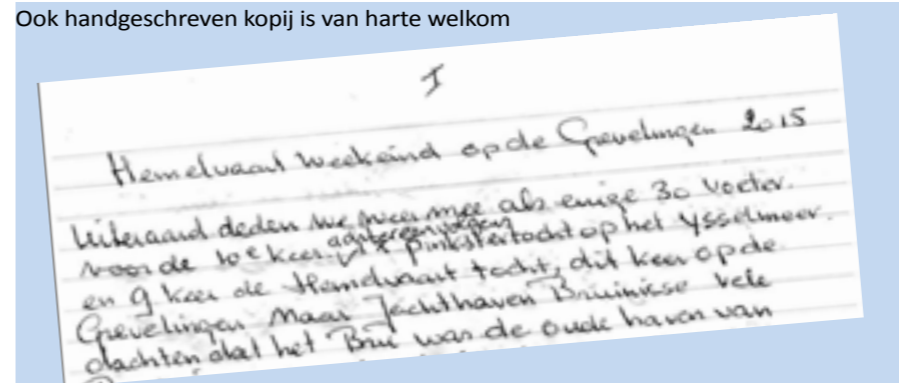 Ook handgeschreven kopij is van harte welkom
I
Hemelvaart weekeind op de Grevelingen 2015
Uiteraard deden we weer mee als enige 30 voeter.
voor de 10e keer achtereenvolgens pinkstertocht op het Ysselmeer.
en 9 keer de Hemelvaart tocht, dit keer op de
Grevelingen Maar Jachthaven Bruinisse vele
dachten dat het Bru was de oude haven van